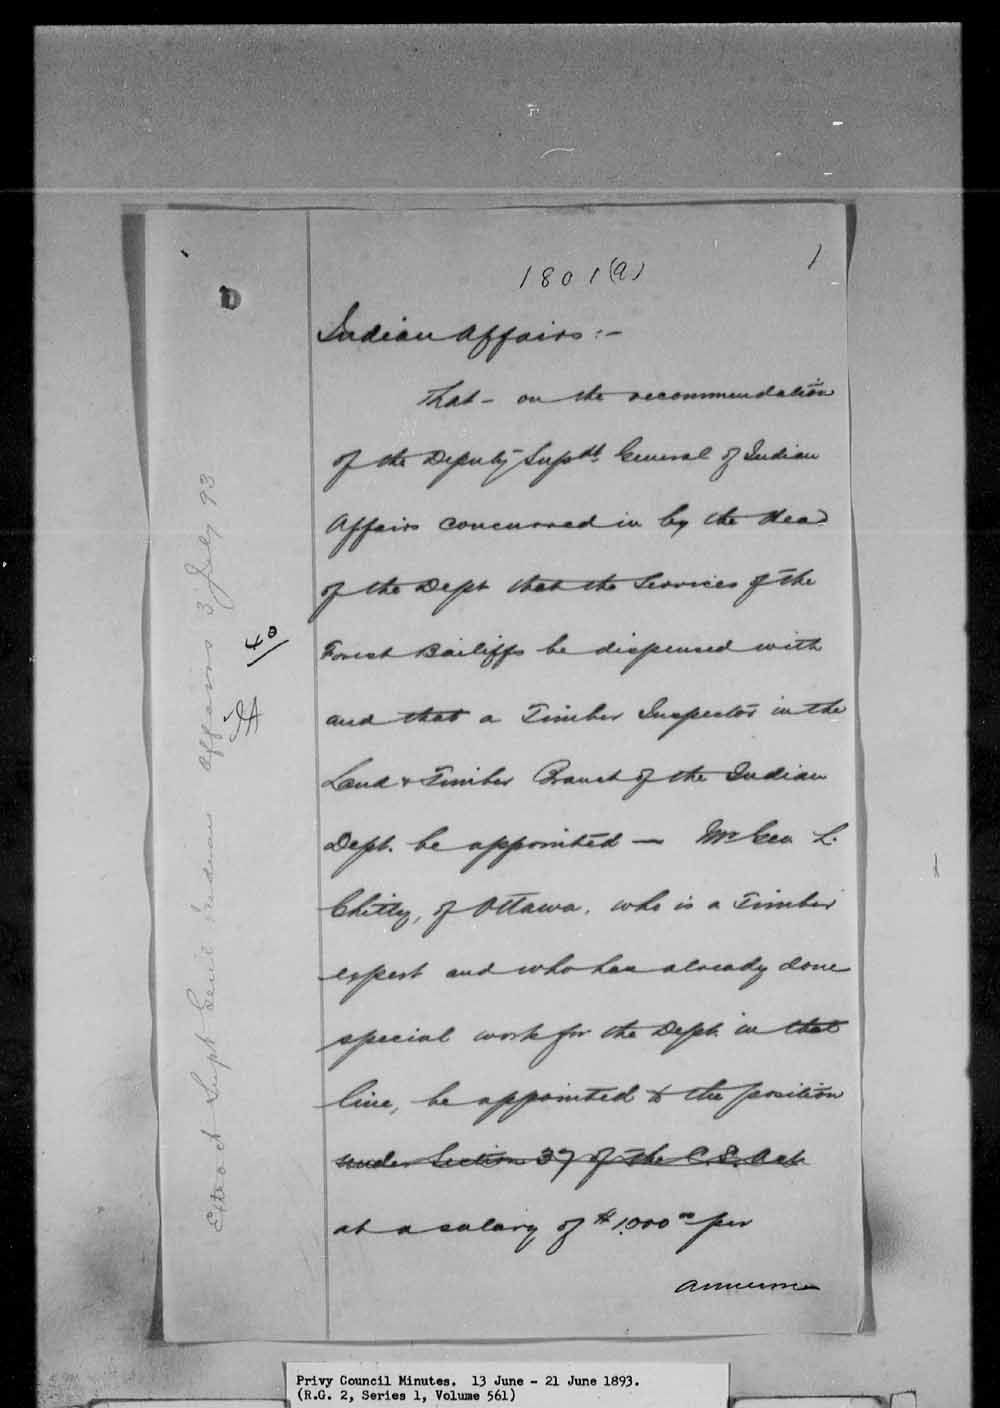 1801(a)
1
Indian Affairs :-
That - on the recommendation
of the Deputy Supdt. General of Indian
Affairs concurred in by the Head
of the Dept that the Services of the
Forest Bailiffs be dispensed with
and that a Timber Inspector in the
Land & Timber Branch of the Indian
Dept. be appointed — Mr Geo. L.
Chitty, of Ottawa, who is a Timber
expert and who has already done
special work for the Dept. in that
line, be appointed to the position
under Section 37 of the C. S. Act
at a salary of $1,000 00 per
annum
40
Extract Supt Gen'l Indian Affairs 3 July 93
Privy Council Minutes. 13 June - 21 June 1893.
(R.G. 2, Series 1, Volume 561)